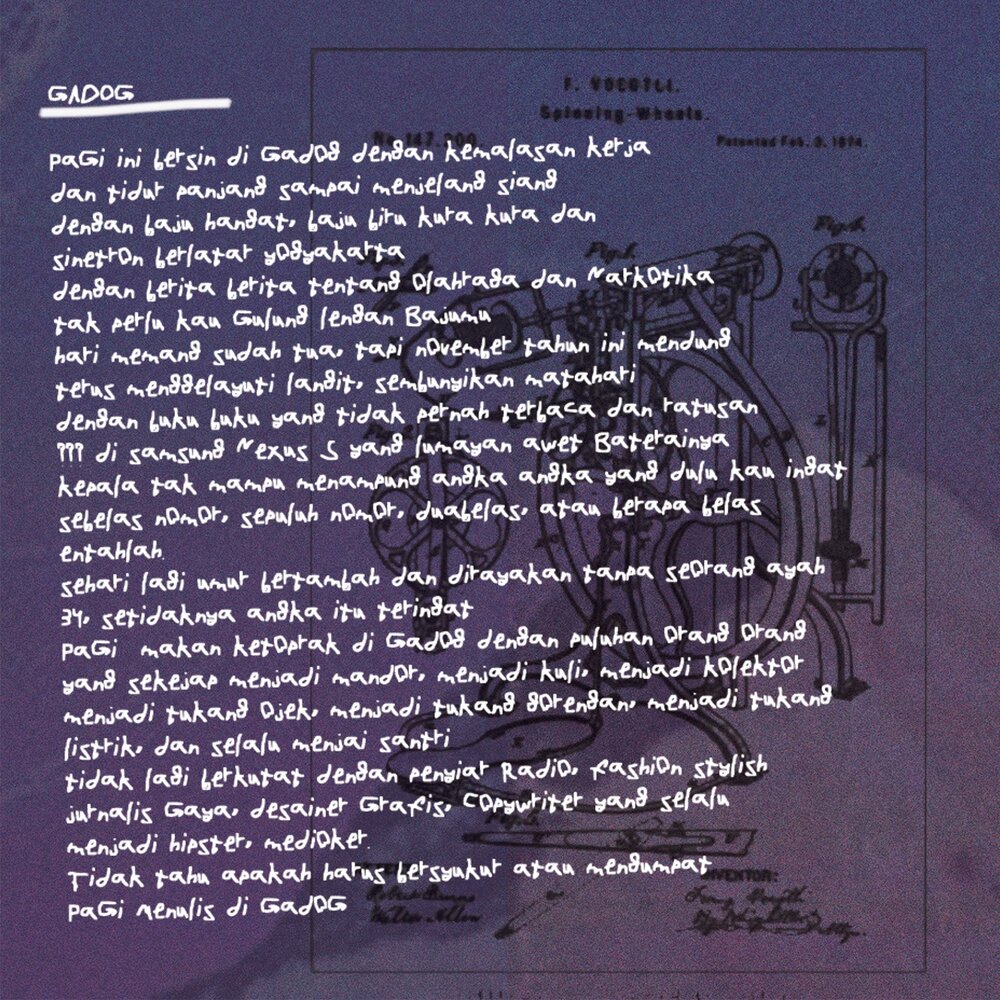 GADOG
F. VOEGTLI.
Spinning-Wheels.
No. 147,200
Patented Feb. 3, 1874.
PaGi ini bersin di GaDOg dengan kemalasan kerja
dan tidur panjang sampai menjelang siang
dengan baju hangat, baju biru kura kura dan
sinetrOn berlatar yOgyakarta
dengan berita berita tentang Olahraga dan NarkOtika
tak perlu kau Gulung lengan Bajumu
hari memang sudah tua, tapi nOvember tahun ini mendung
terus menggelayuti langit, sembunyikan matahari
dengan buku buku yang tidak pernah terbaca dan ratusan
??? di samsung Nexus S yang lumayan awet Baterainya
kepala tak mampu menampung angka angka yang dulu kau ingat
sebelas nOmOr, sepuluh nOmOr, duabelas, atau berapa belas
entahlah.
sehari lagi umur bertambah dan dirayakan tanpa seOrang ayah
34, setidaknya angka itu teringat
PaGi makan ketOprak di GaDOg dengan puluhan Orang Orang
yang sekejap menjadi mandOr, menjadi kuli, menjadi kOlektOr
menjadi tukang Ojek, menjadi tukang gOrengan, menjadi tukang
listrik, dan selalu menjai santri
tidak lagi berkutat dengan penyiar RadiO, fashiOn stylish
jurnalis Gaya, desainer Grafis, COpywriter yang selalu
menjadi hipster, mediOker.
Tidak tahu apakah harus bersyukur atau mengumpat
PaGi Menulis di GaDOG
INVENTOR: